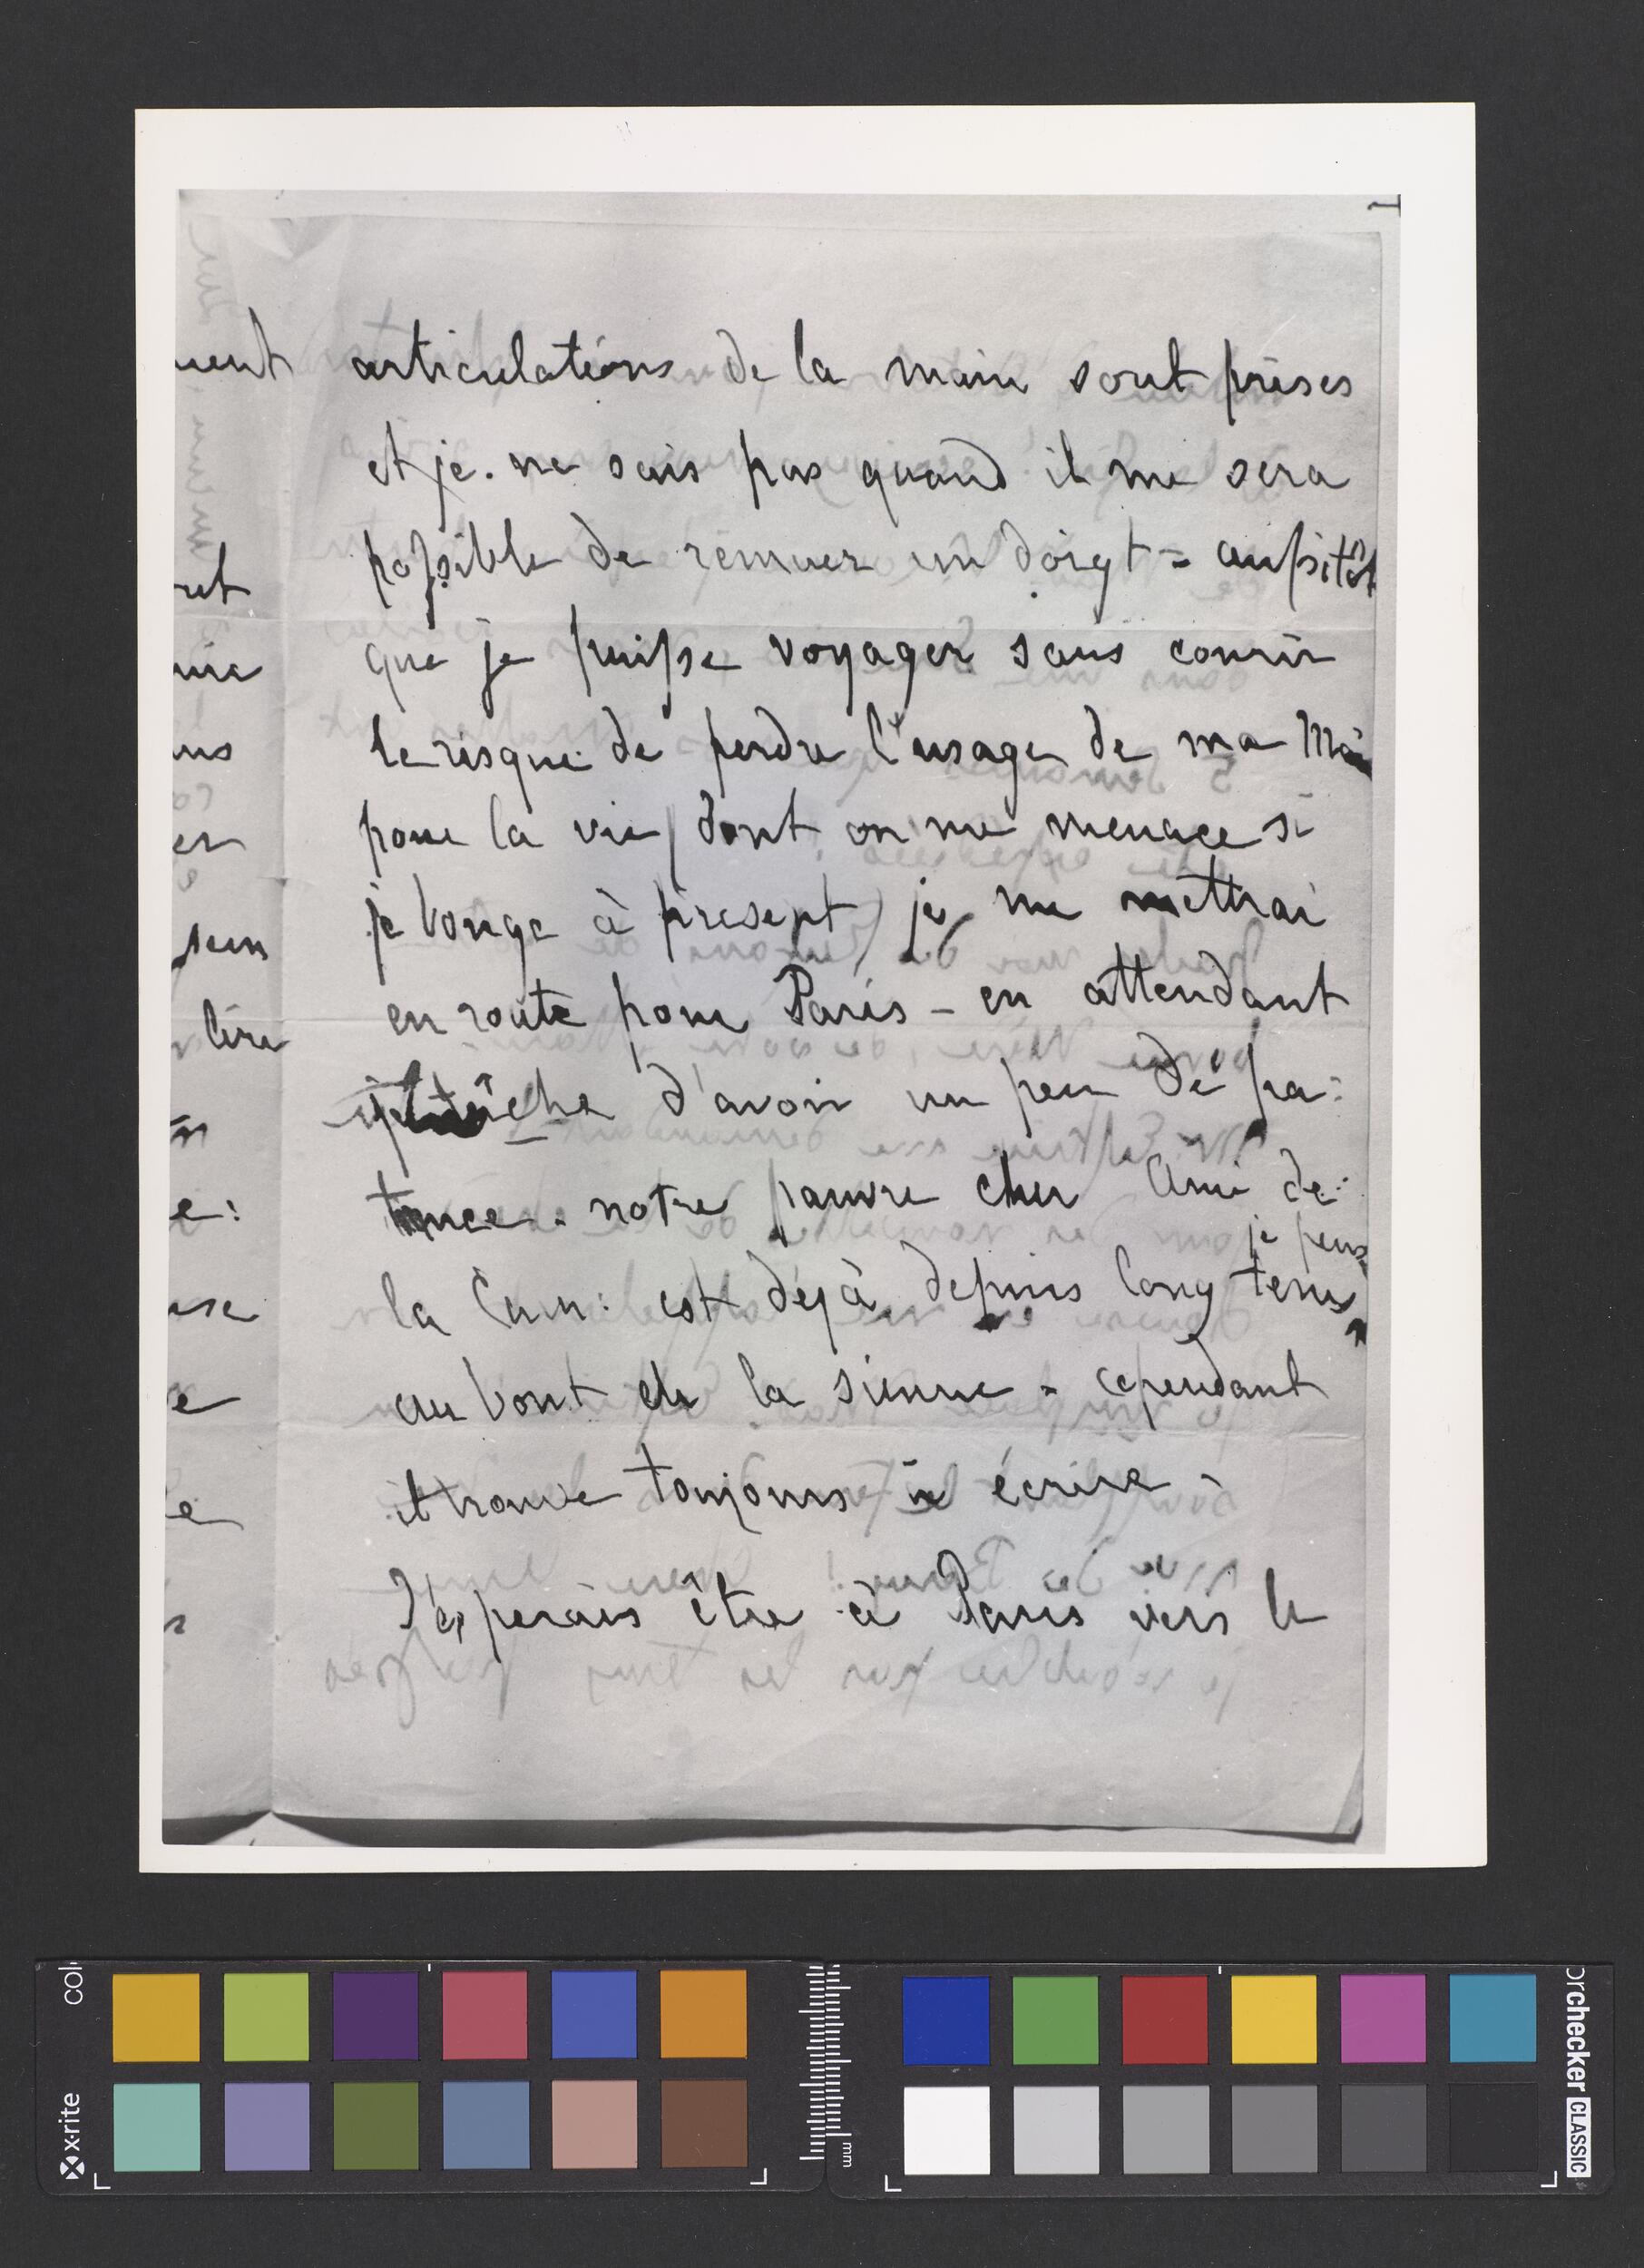 articulations de la main sont prises
et je ne sais pas quand il me sera
possible de remuer un doigt = aussitôt
que je puisse voyager sans courir
le risque de perdre l'usage de ma Main
pour la vie (dont on me menace si
je bouge à présent) je me mettrai
en route pour Paris – en attendant
tâche d'avoir un peu de pa:
tience. notre pauvre cher Ami de
je pense
la est déjà depuis long tems
au bout de la sienne = cependant
il trouve toujours à écrire –
J'espérais être à Paris vers le
ment
ut
ans
er
lire
e:
use
e
x-rite
colorchecker CLASSIC
mm